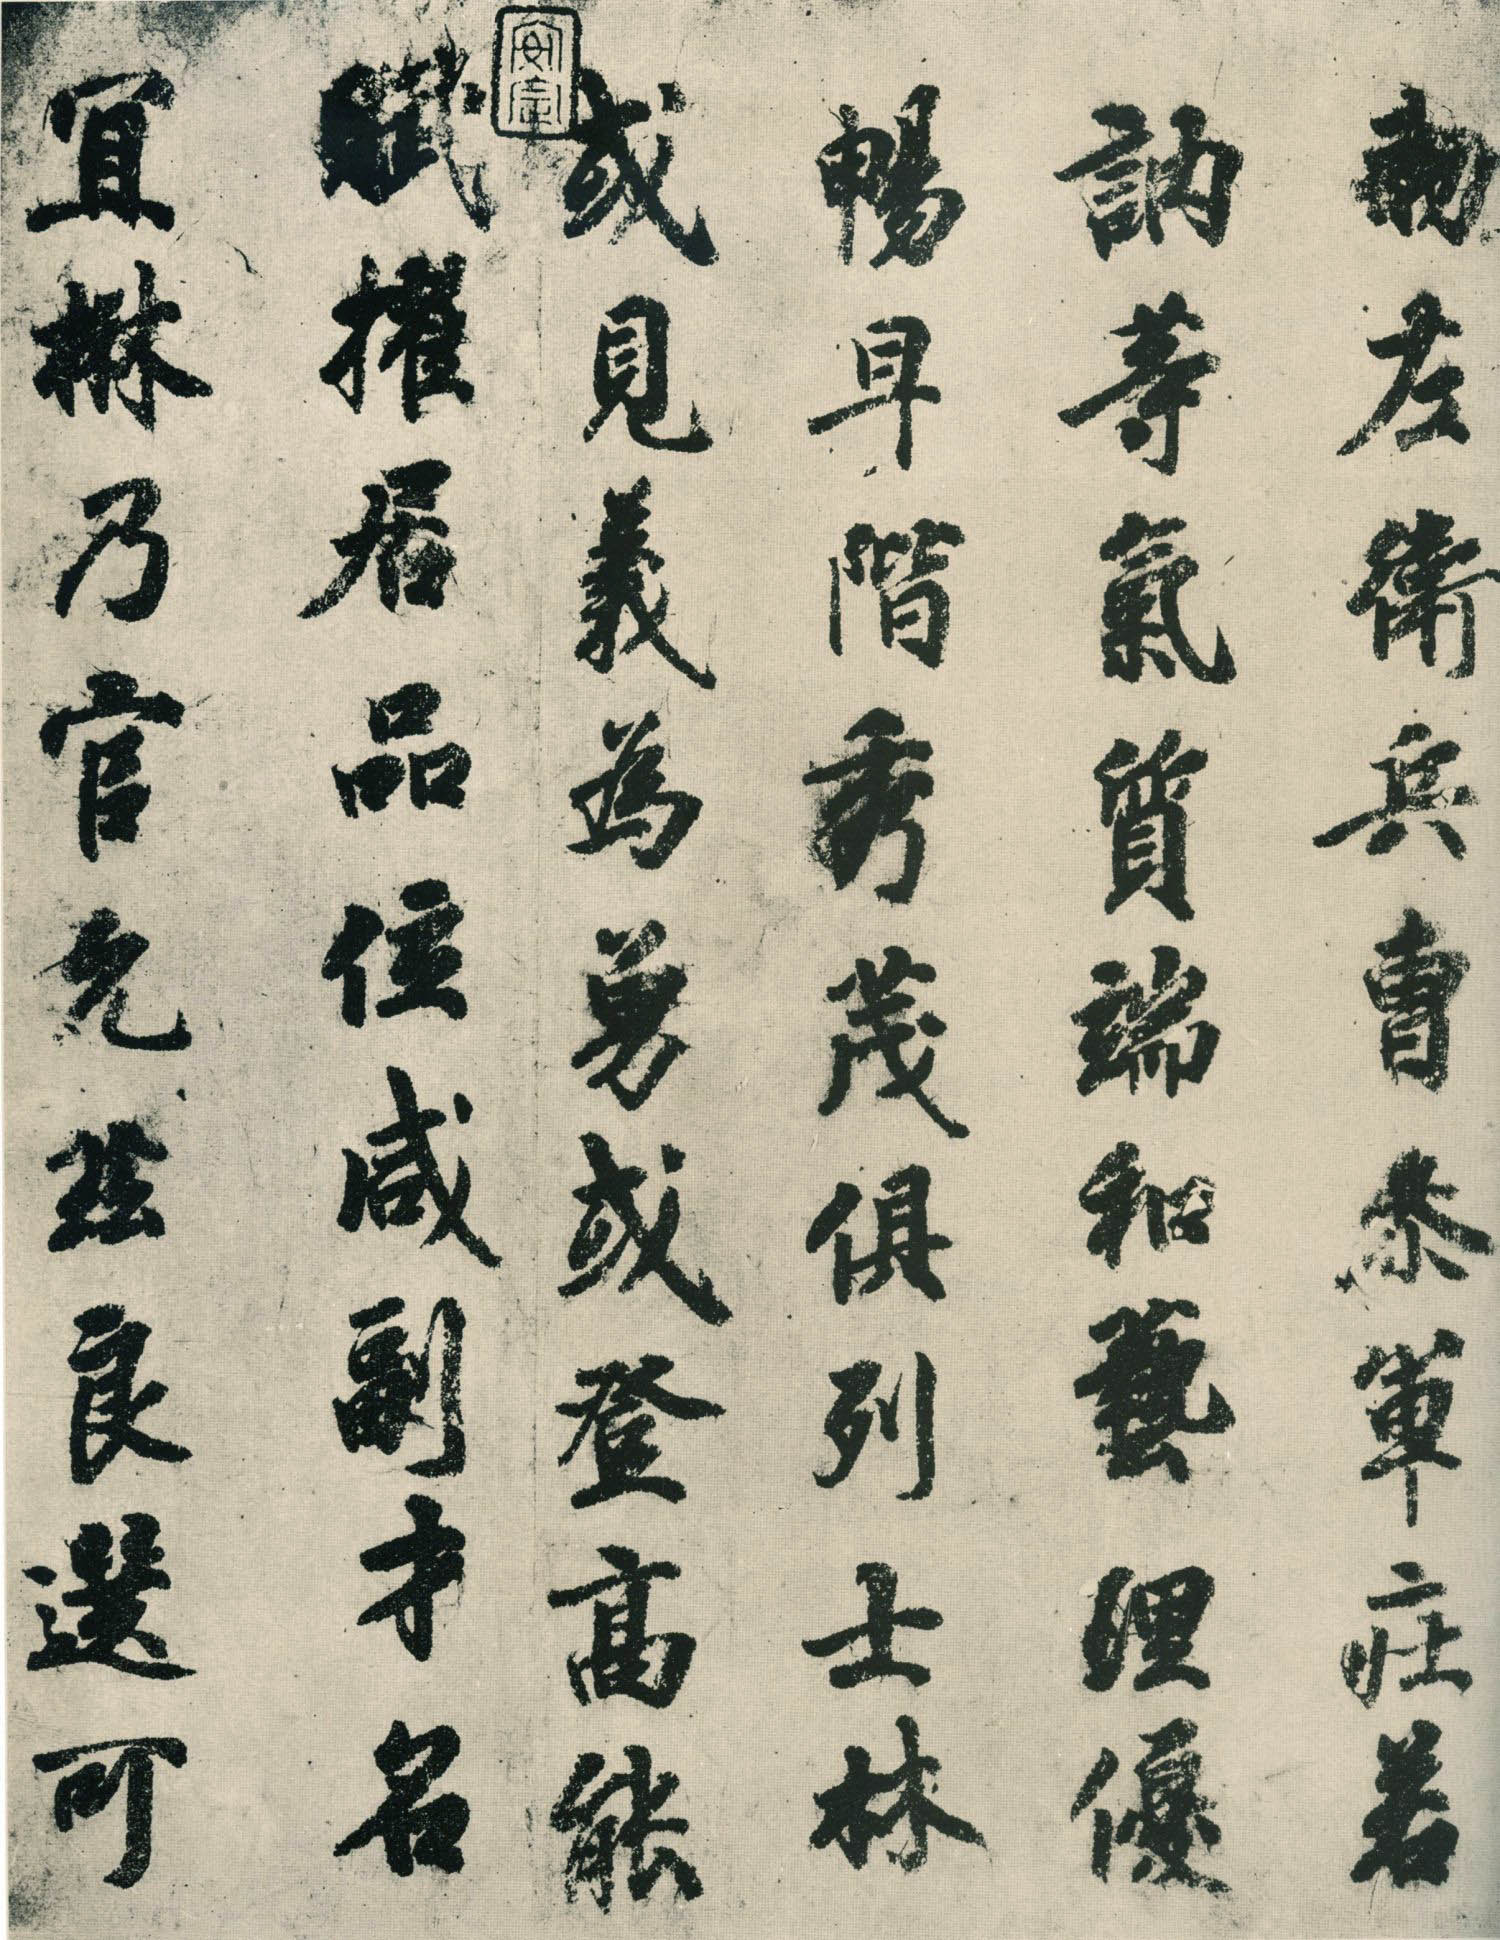 勅左衛兵曹叅軍莊若
訥等氣質端和藝理優
暢早階秀茂俱列士林
或見義為勇或登高能
賦擢居品位咸副才名
宜楙乃官允茲良選可